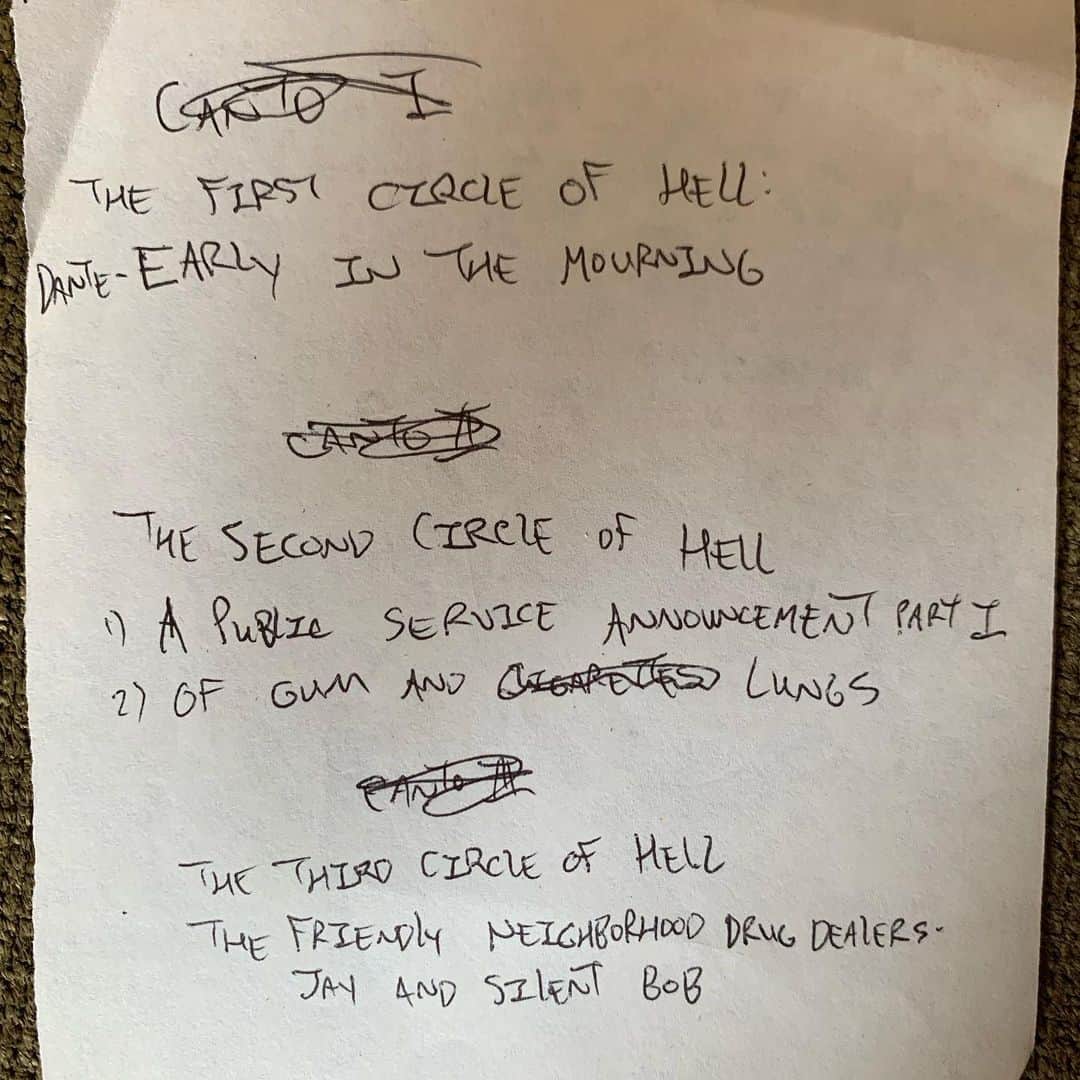 CANTO I
THE FIRST CIRCLE OF HELL:
DANTE- EARLY IN THE MOURNING
CANTO II
THE SECOND CIRCLE OF HELL
1) A PUBLIC SERVICE ANNOUNCEMENT PART I
2) OF GUM AND CIGARETTES LUNGS
CANTO III
THE THIRD CIRCLE OF HELL
THE FRIENDLY NEIGHBORHOOD DRUG DEALERS-
JAY AND SILENT BOB